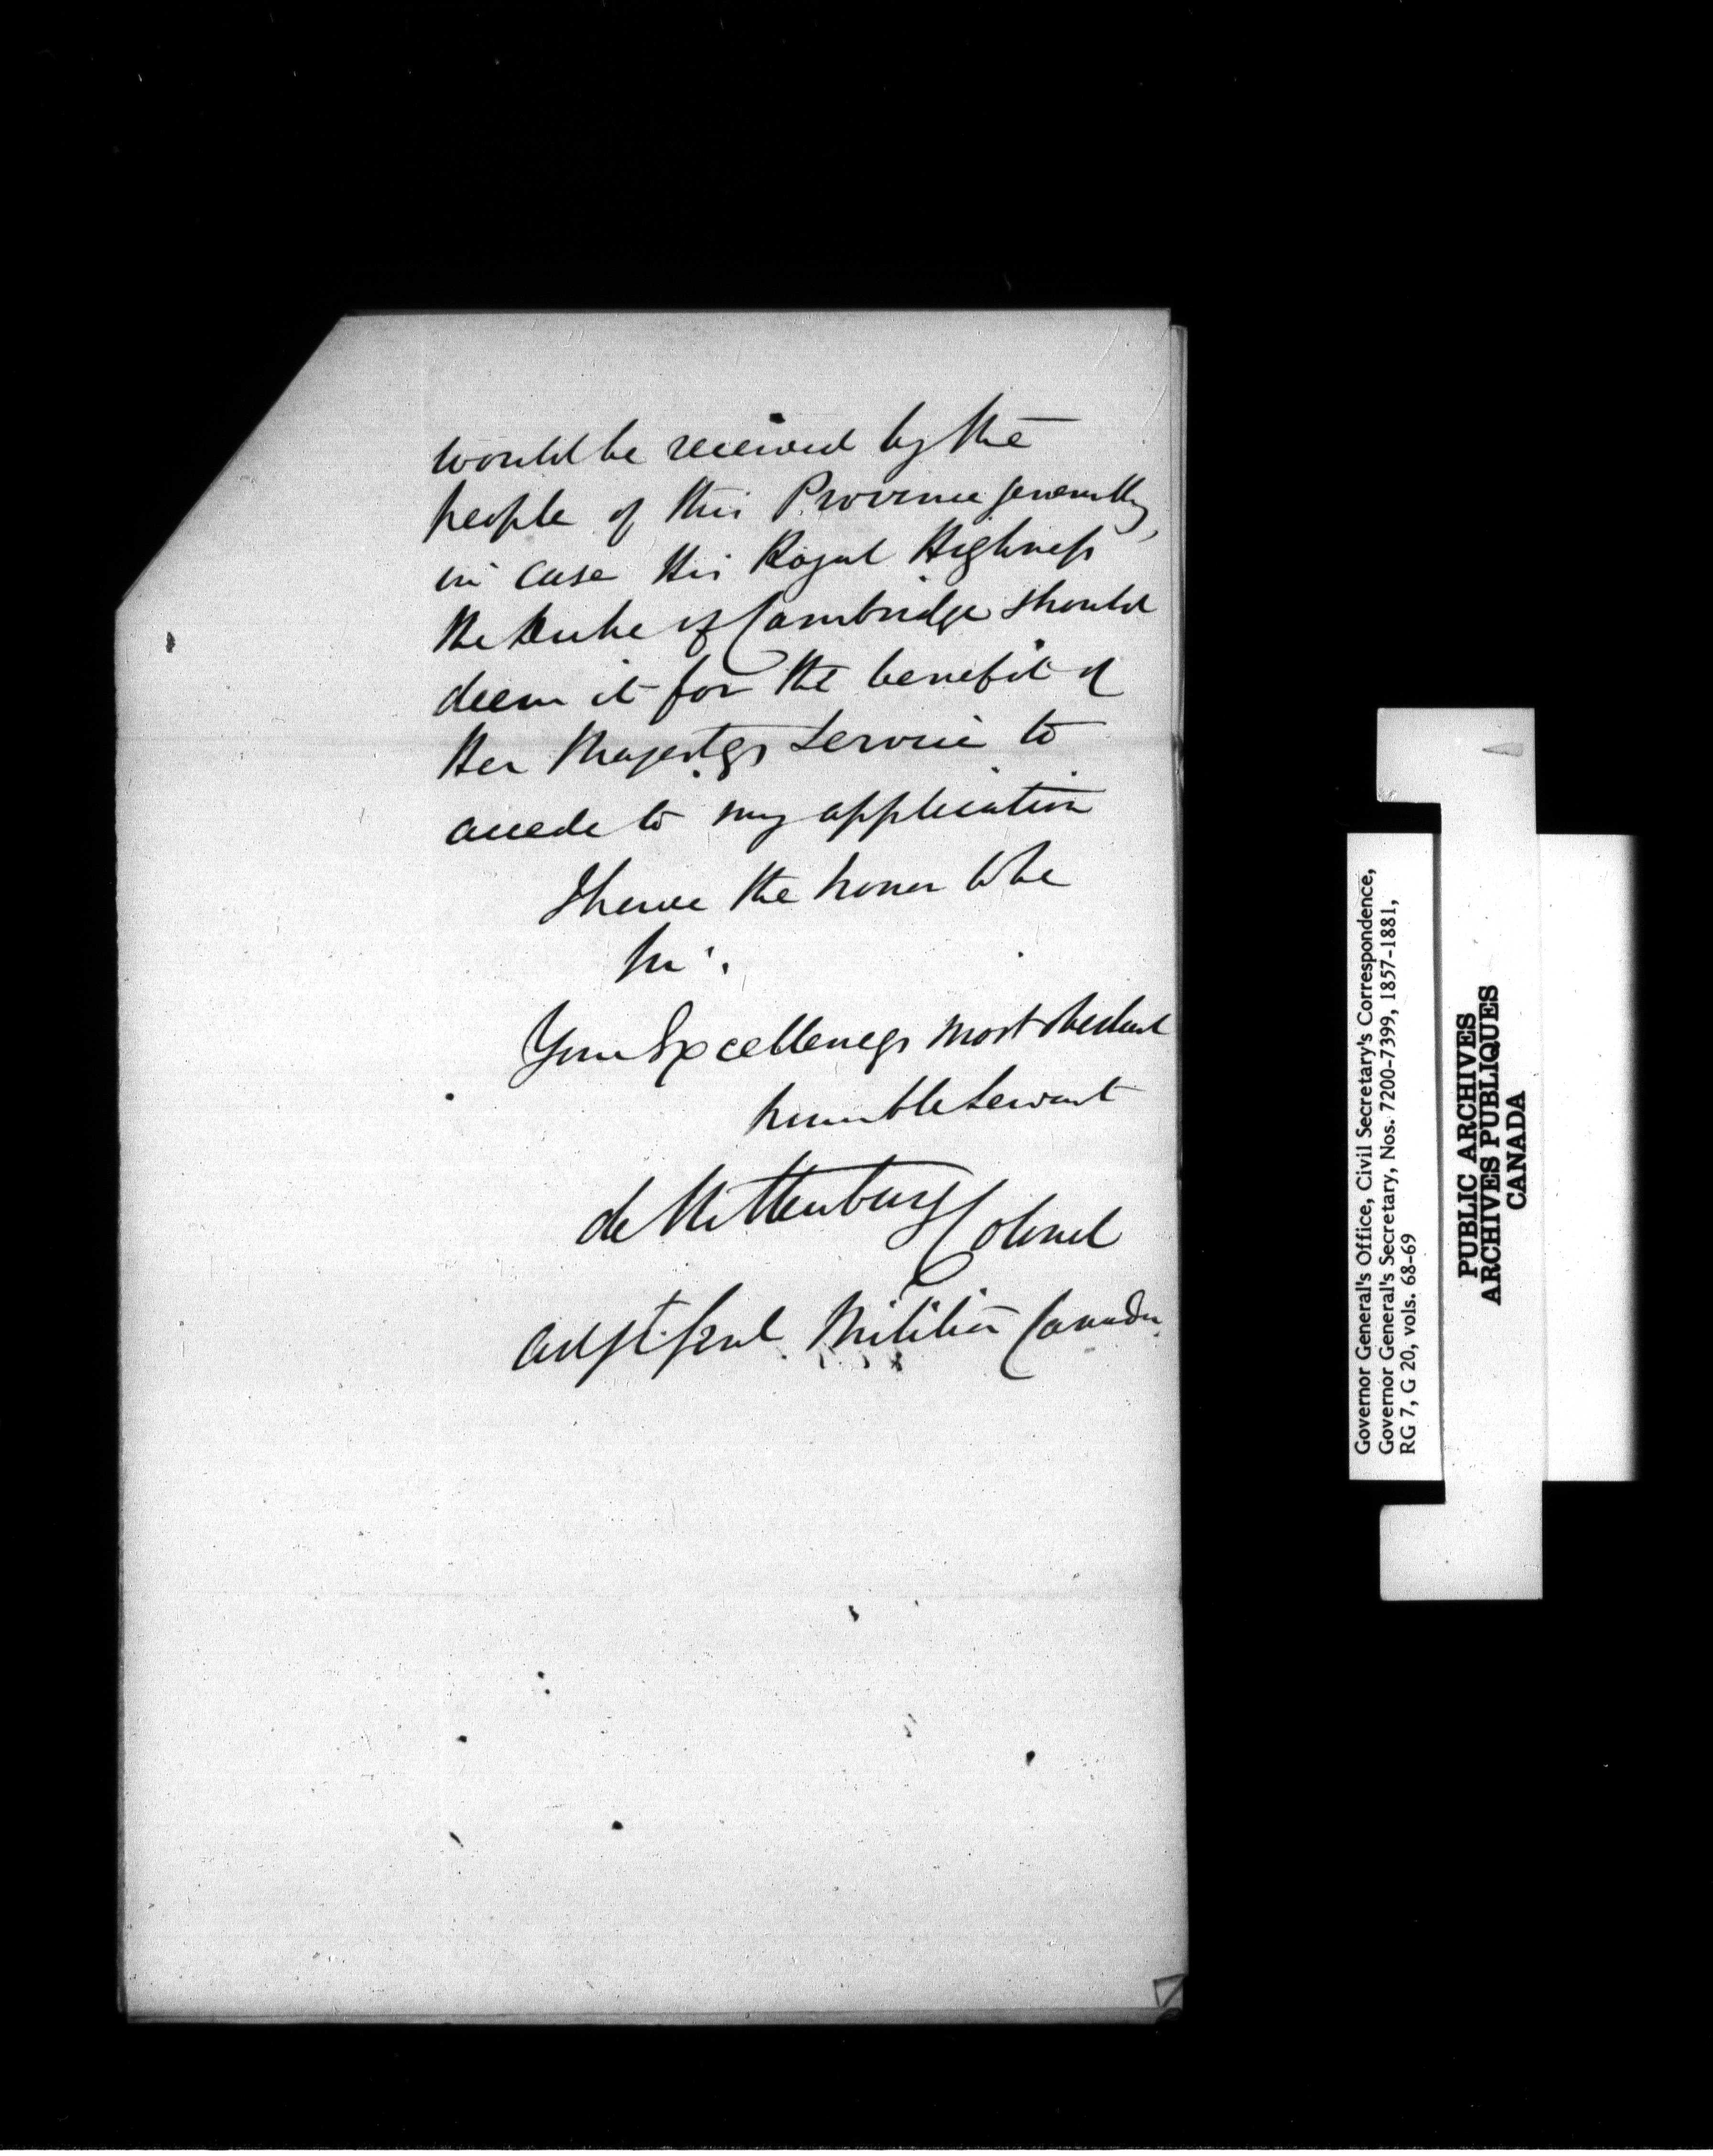 would be received by the
people of this Province generally,
in case His Royal Highness
the Duke of Cambridge should
deem it for the benefit of
Her Majestys Service to
accede to my application
I have the honor to be
Sir.
Your Excellencys most obedient
humble Servant
de Rottenburg Colonel
Adjt. Genl. Militia Canada
Governor General's Office, Civil Secretary's Correspondence,
Governor General's Secretary, Nos. 7200-7399, 1857-1881,
RG 7, G 20, vols. 68-69
PUBLIC ARCHIVES
ARCHIVES PUBLIQUES
CANADA